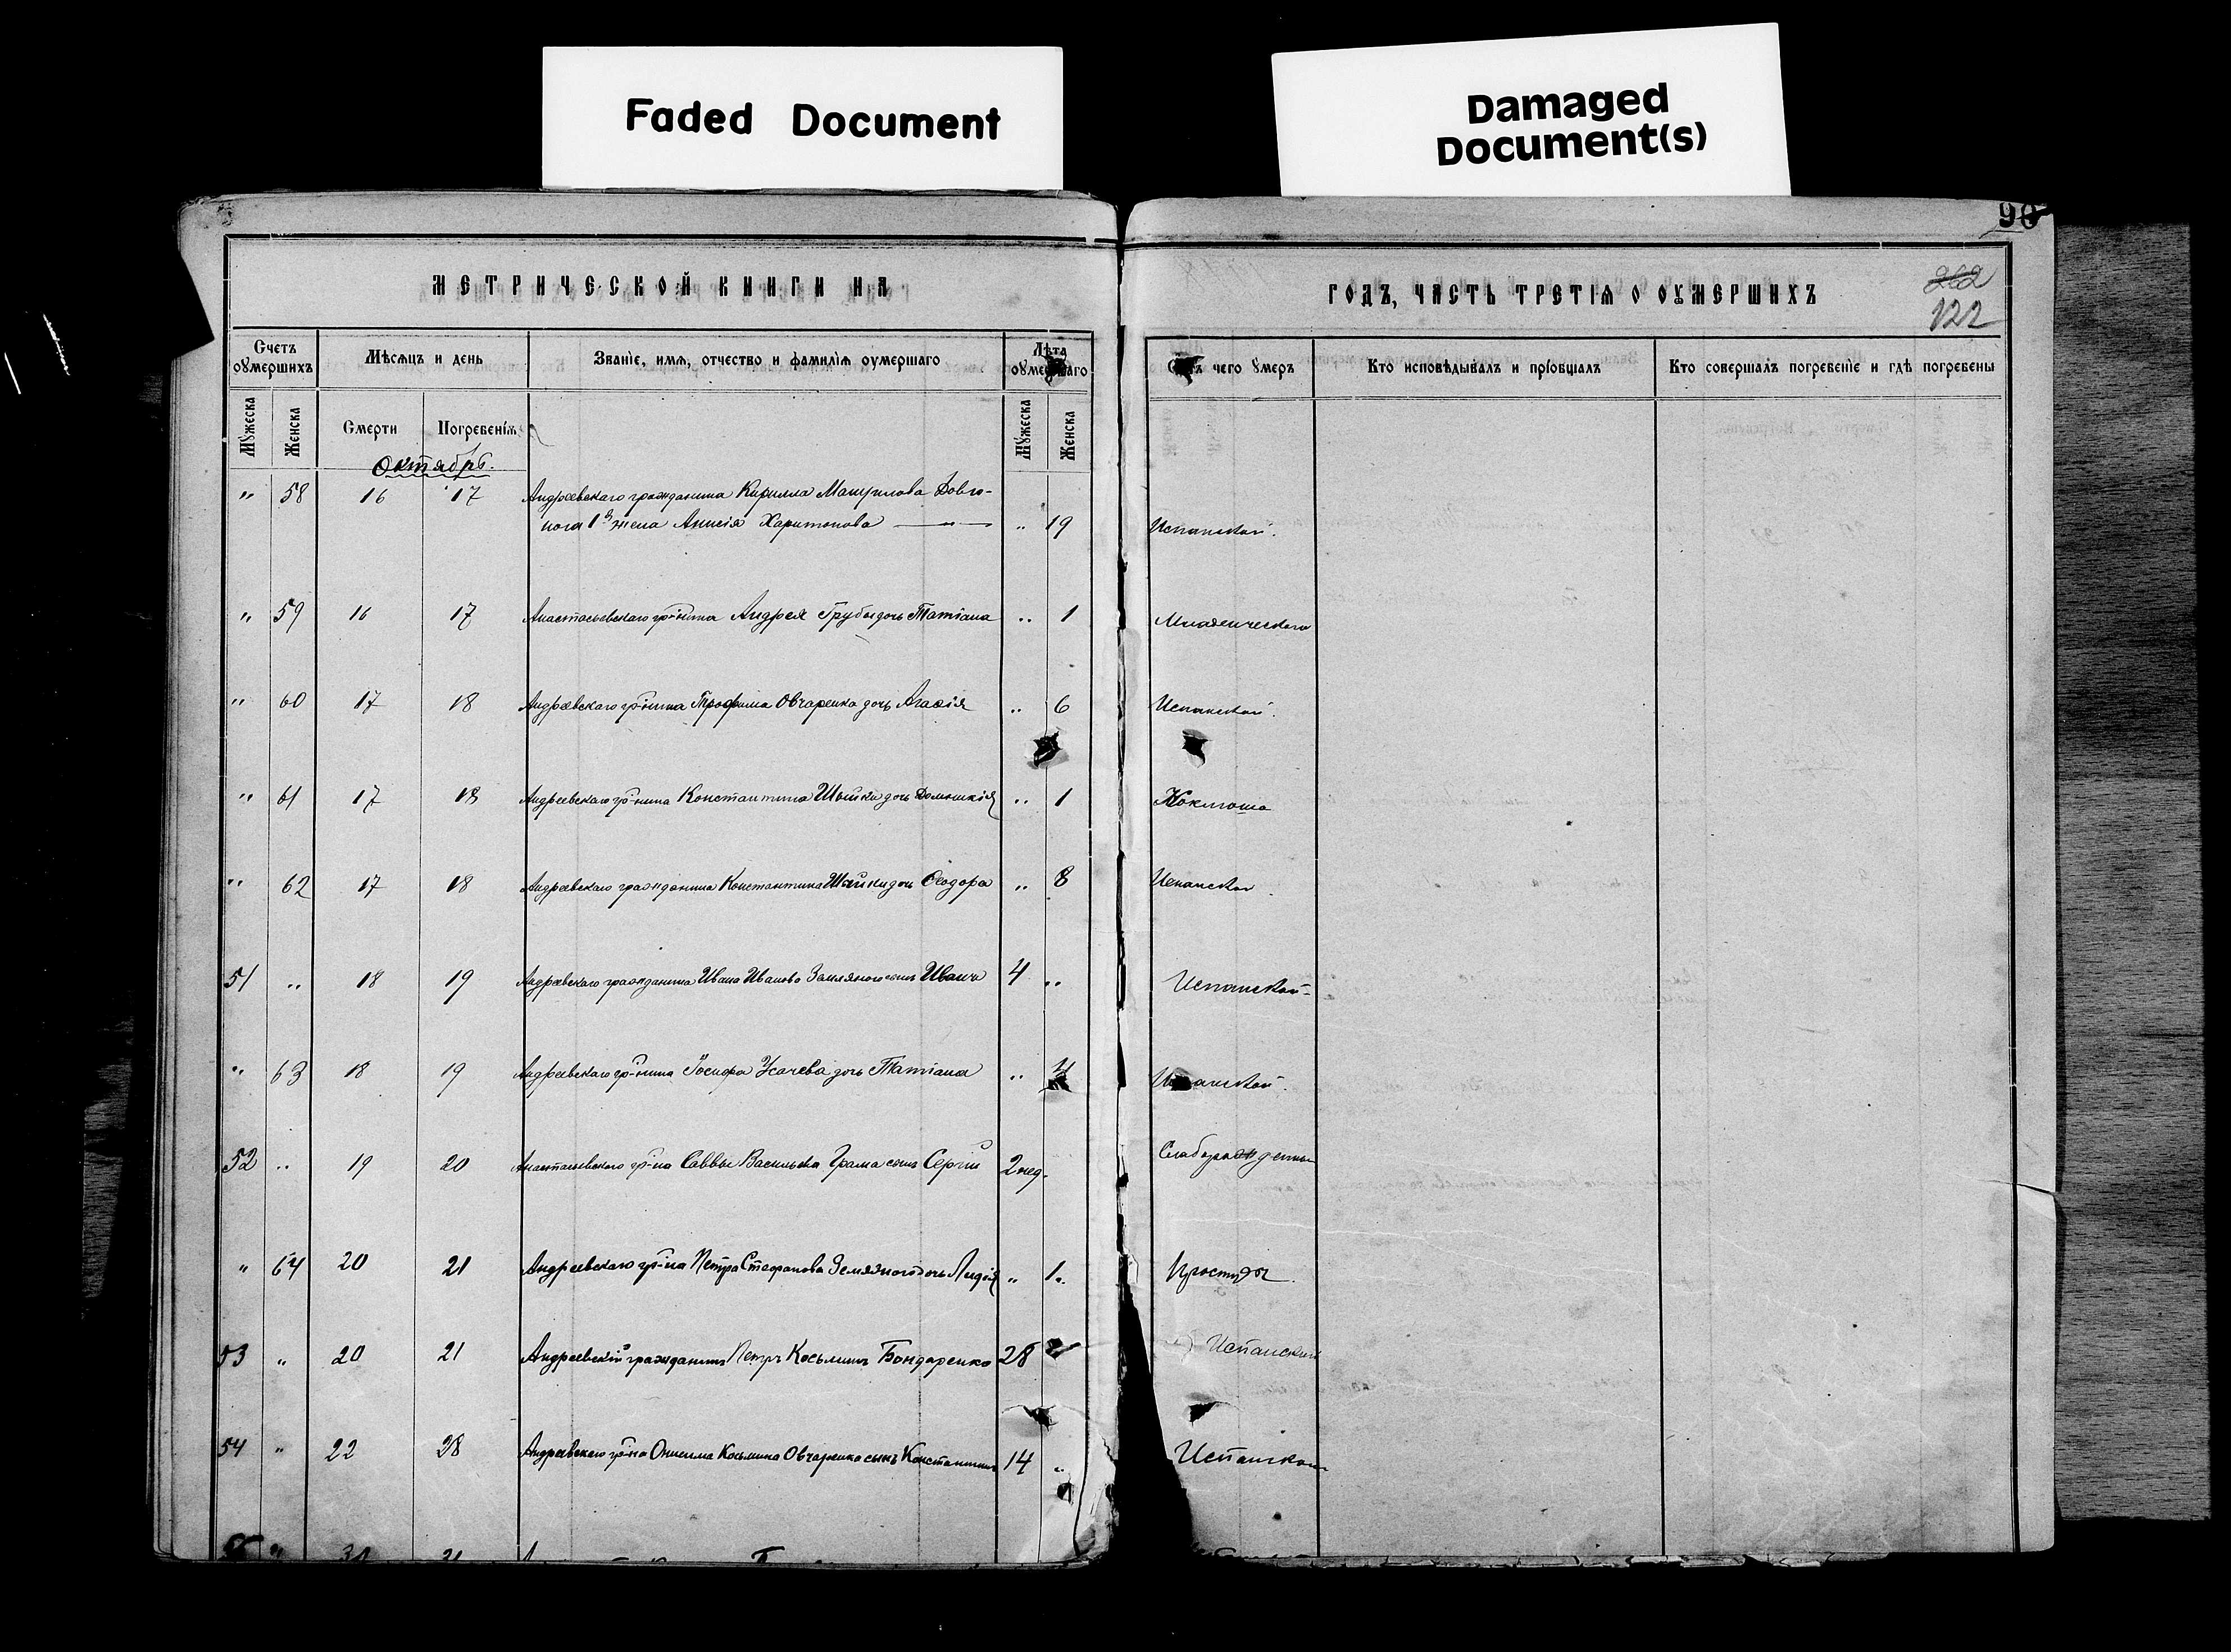 Faded Document
Damaged
Document(s)
90
МЕТРИЧЕСКОЙ КНИГИ НА
ГОДЪ, ЧАСТЬ ТРЕТІѦ О ОУМЕРШИХЪ
262
122
Счетъ оумершихъ
Мѣсѧцъ и день
Званіе, имѧ, отчество и фамиліѧ оумершаго
Лѣта оумершаго
чего умеръ
Кто исповѣдывалъ и пріобщалъ
Кто совершалъ погребеніе и гдѣ погребены
Мужеска
Женска
Смерти
Погребеніѧ
Мужеска
Женска
Октябрь.
" 58 16 17 Андреевскаго гражданина Кирилла Довго-
нога 1й жена Анисія Харитонова " 19 Испанской.
" 59 16 17 Анастасьевскаго гр-нина Андрея Грубы дочь Татіана " 1 Младенческаго
" 60 17 18 Андреевскаго гр-нина Трофима Овчаренка дочь Агафія " 6 Испанской.
" 61 17 18 Андреевскаго гр-нина Константина дочь " 1 Коклюша
" 62 17 18 Андреевскаго гражданина Константина Шайки дочь Ѳеодора " 8 Испанской
51 " 18 19 Андреевскаго гражданина Ивана Иванова Земляного сынъ Иванъ 4 " Испанской
" 63 18 19 Андреевскаго гр-нина Іосифа Усачева дочь Татіана " 4 Испанской.
52 " 19 20 Анастасьевскаго гр-на Саввы Васильева Грама сынъ Сергій 2 нед.
" 64 20 21 Андреевскаго гр-на Петра Стефанова Земляного дочь Лидія " 1 " Простуды.
53 " 20 21 Андреевскій гражданинъ Петръ Косьминъ Бондаренко 28 Испанской
54 " 22 28 Андреевскаго гр-на Онисима Косьмина Овчаренка сынъ Константинъ 14 " Испанской